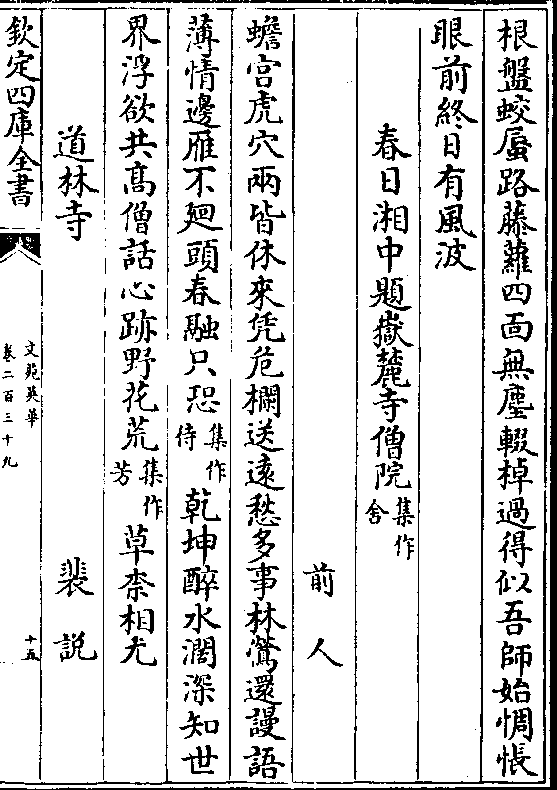 根盤蛟蜃路藤蘿四面無塵輟棹過得似吾師始惆悵
眼前終日有風波
春日湘中題嶽麓寺僧院集作舎
前人
蟾宫虎穴兩皆休來凭危欄送遠愁多事林鶯還謾語
薄情邊雁不廻頭春融只恐集作侍乾坤醉水濶深知世
界浮欲共髙僧話心跡野花荒集作芳草柰相尤
道林寺
裴説
欽定四庫全書
文苑英華
卷二百三十九
十五